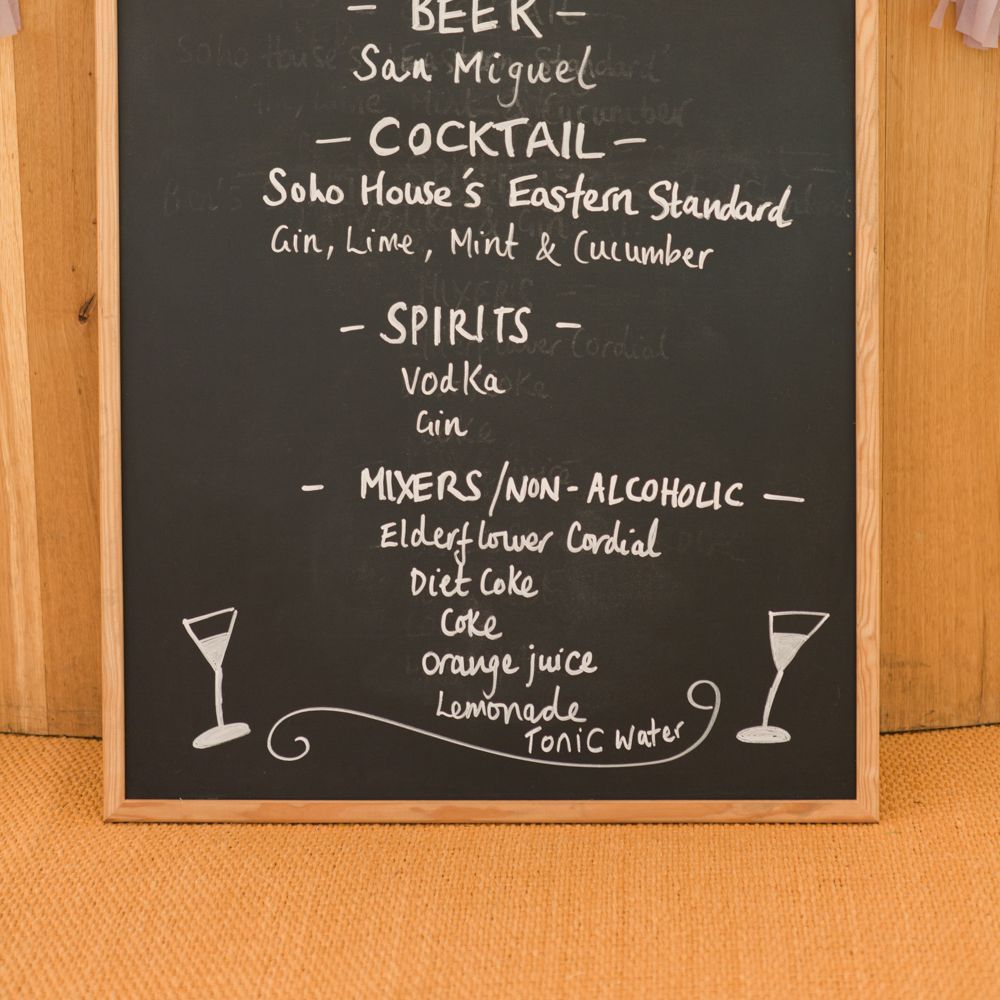 - BEER -
San Miguel
- COCKTAIL -
Soho House's Eastern Standard
Gin, Lime, Mint & Cucumber
- SPIRITS -
Vodka
Gin
- MIXERS/NON-ALCOHOLIC -
Elderflower Cordial
Diet Coke
Coke
Orange juice
Lemonade
Tonic Water